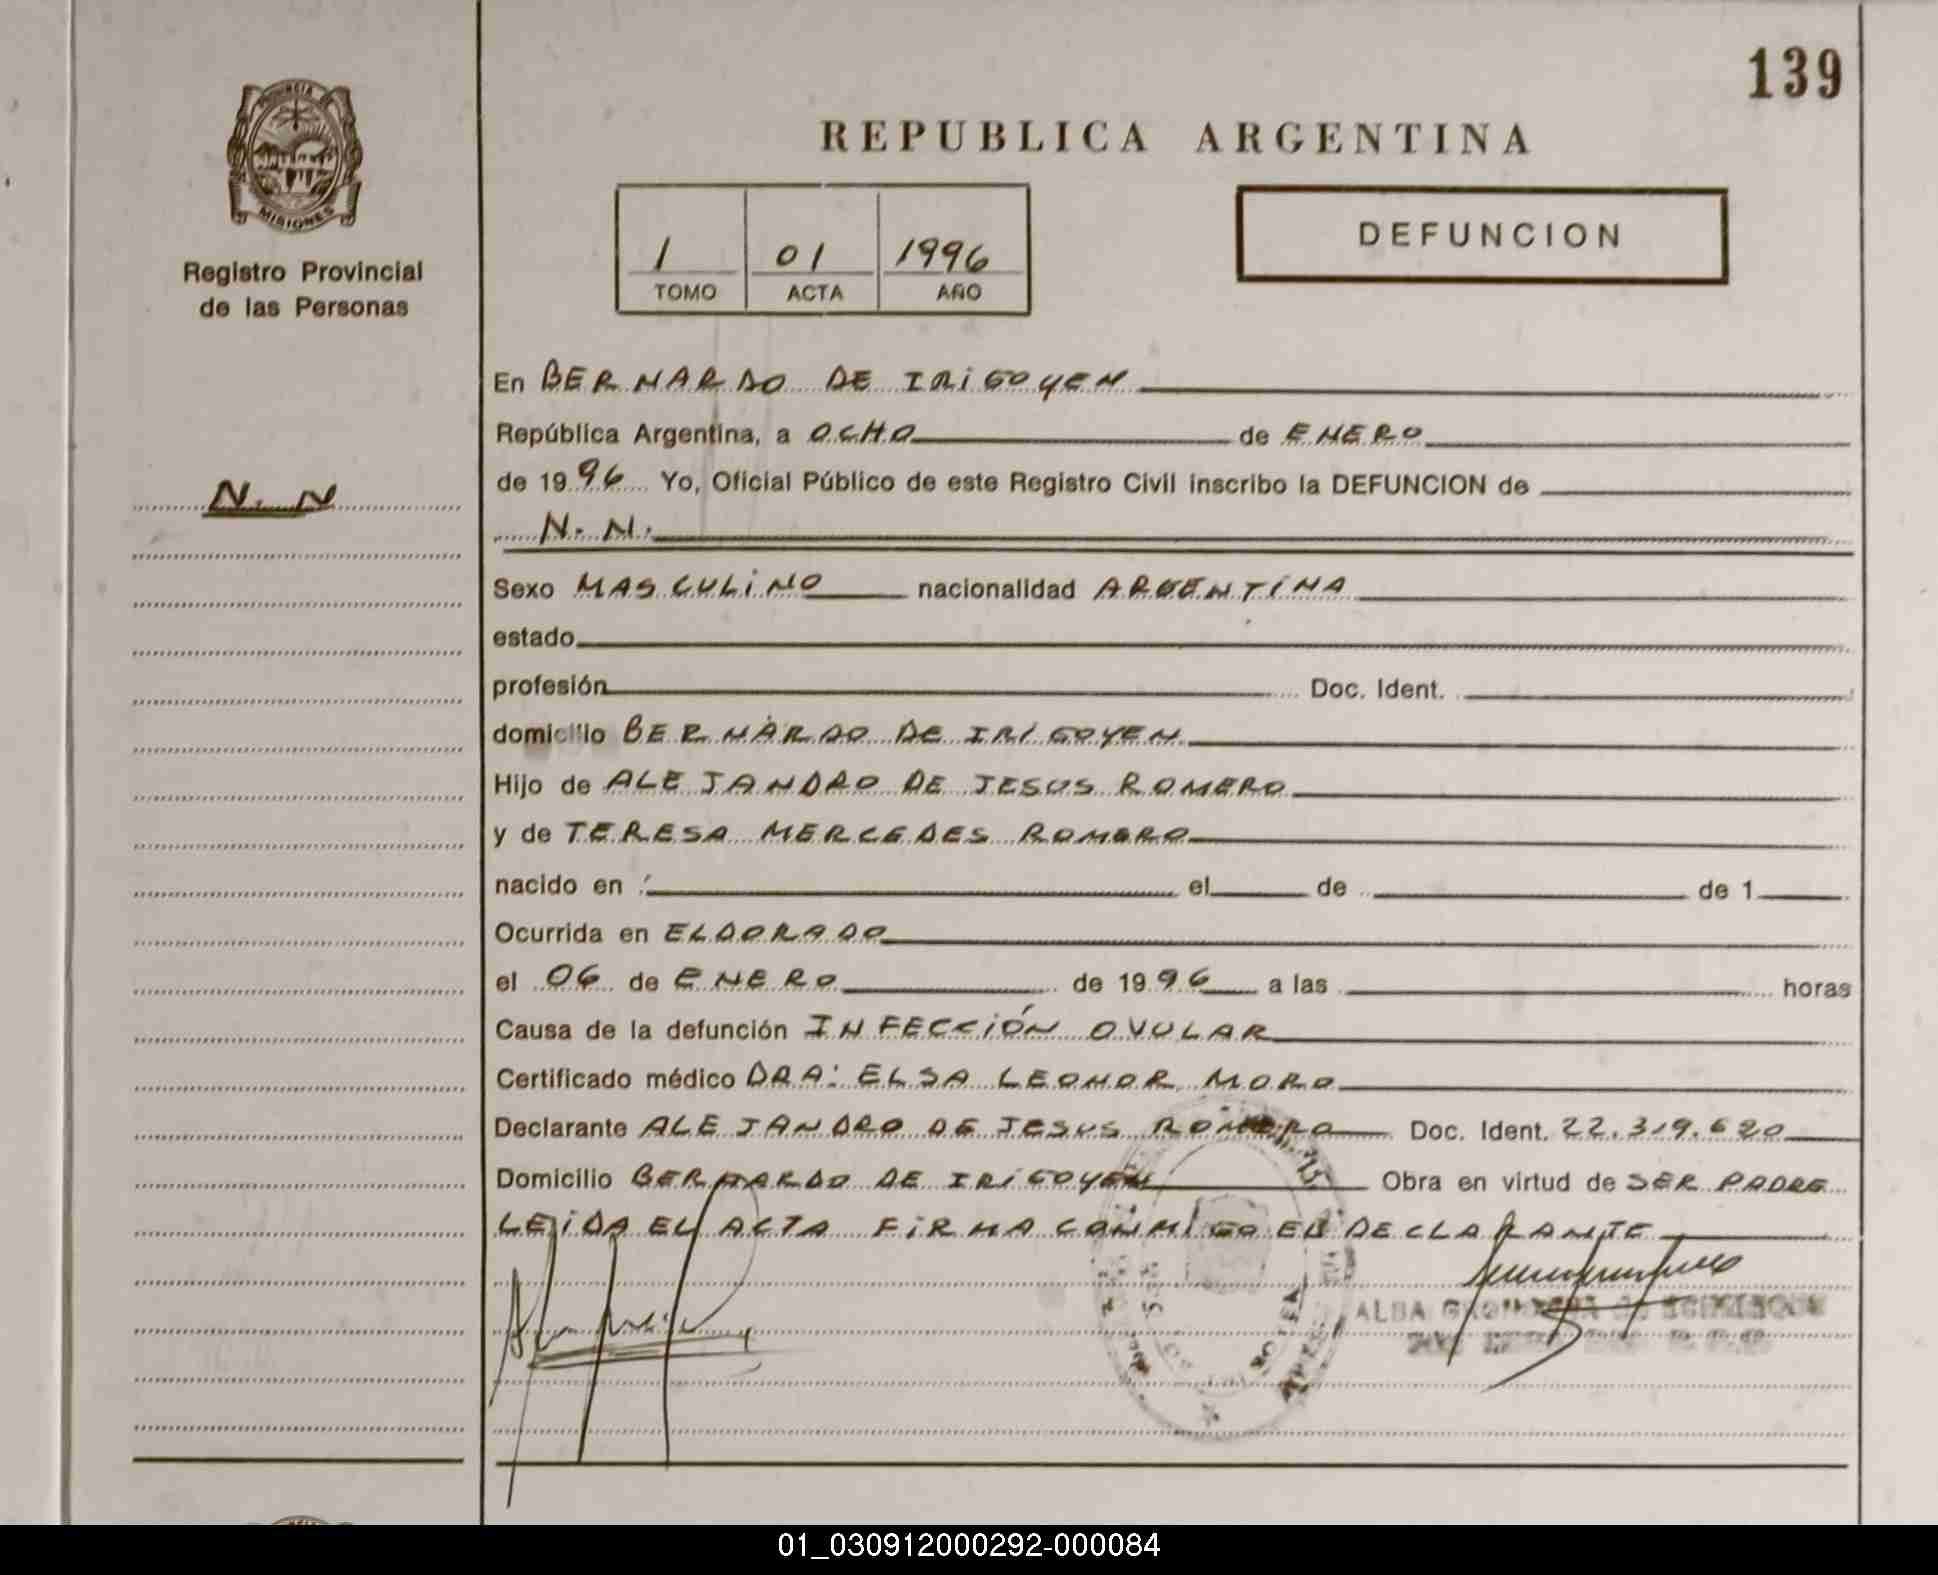 139
REPUBLICA ARGENTINA
PROVINCIA DE
MISIONES
Registro Provincial
de las Personas
1 01 1996
TOMO ACTA AÑO
DEFUNCION
En BERNARDO DE IRIGOYEN
República Argentina, a OCHO de ENERO
de 1996 Yo, Oficial Público de este Registro Civil inscribo la DEFUNCION de
N. N
N. N.
Sexo MASCULINO nacionalidad ARGENTINA
estado
profesión Doc. Ident.
domicilio BERNARDO DE IRIGOYEN
Hijo de ALEJANDRO DE JESUS ROMERO
y de TERESA MERCEDES ROMERO
nacido en el de de 1
Ocurrida en ELDORADO
el 06 de ENERO de 1996 a las horas
Causa de la defunción INFECCIÓN OVULAR
Certificado médico DRA: ELSA LEONOR MORO
Declarante ALEJANDRO DE JESUS ROMERO Doc. Ident. 22.319.620
Domicilio BERNARDO DE IRIGOYEN Obra en virtud de SER PADRE
LEIDA EL ACTA FIRMA CONMIGO EL DECLARANTE
ALBA
01_030912000292-000084